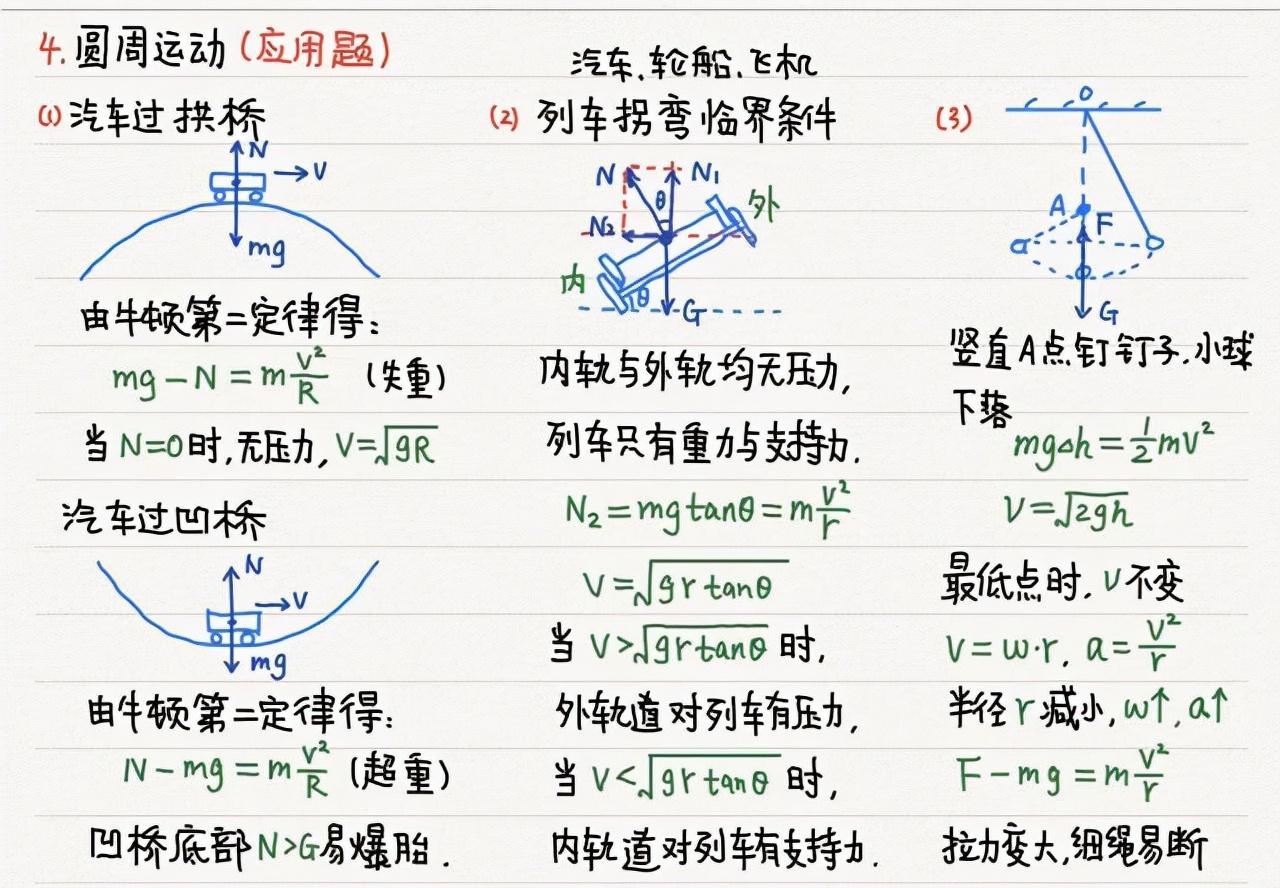 4. 圆周运动 (应用题)
(1) 汽车过拱桥
N
V
mg
由牛顿第二定律得:
mg - N = m v²/R (失重)
当 N=0时, 无压力, V=√gR
汽车过凹桥
N
V
mg
由牛顿第二定律得:
N - mg = m v²/R (超重)
凹桥底部 N>G易爆胎.
汽车、轮船、飞机
(2) 列车拐弯临界条件
N N₁
θ 外
N₂
内 θ G
内轨与外轨均无压力,
列车只有重力与支持力.
N₂ = mg tanθ = m v²/r
V = √gr tanθ
当 V > √gr tanθ 时,
外轨道对列车有压力,
当 V < √gr tanθ 时,
内轨道对列车有支持力.
(3)
O
A F
G
竖直A点钉钉子, 小球
下落
mg△h = ½mv²
V = √2gh
最低点时, V不变
V = w·r, a = v²/r
半径 r 减小, w↑, a↑
F - mg = m v²/r
拉力变大, 细绳易断